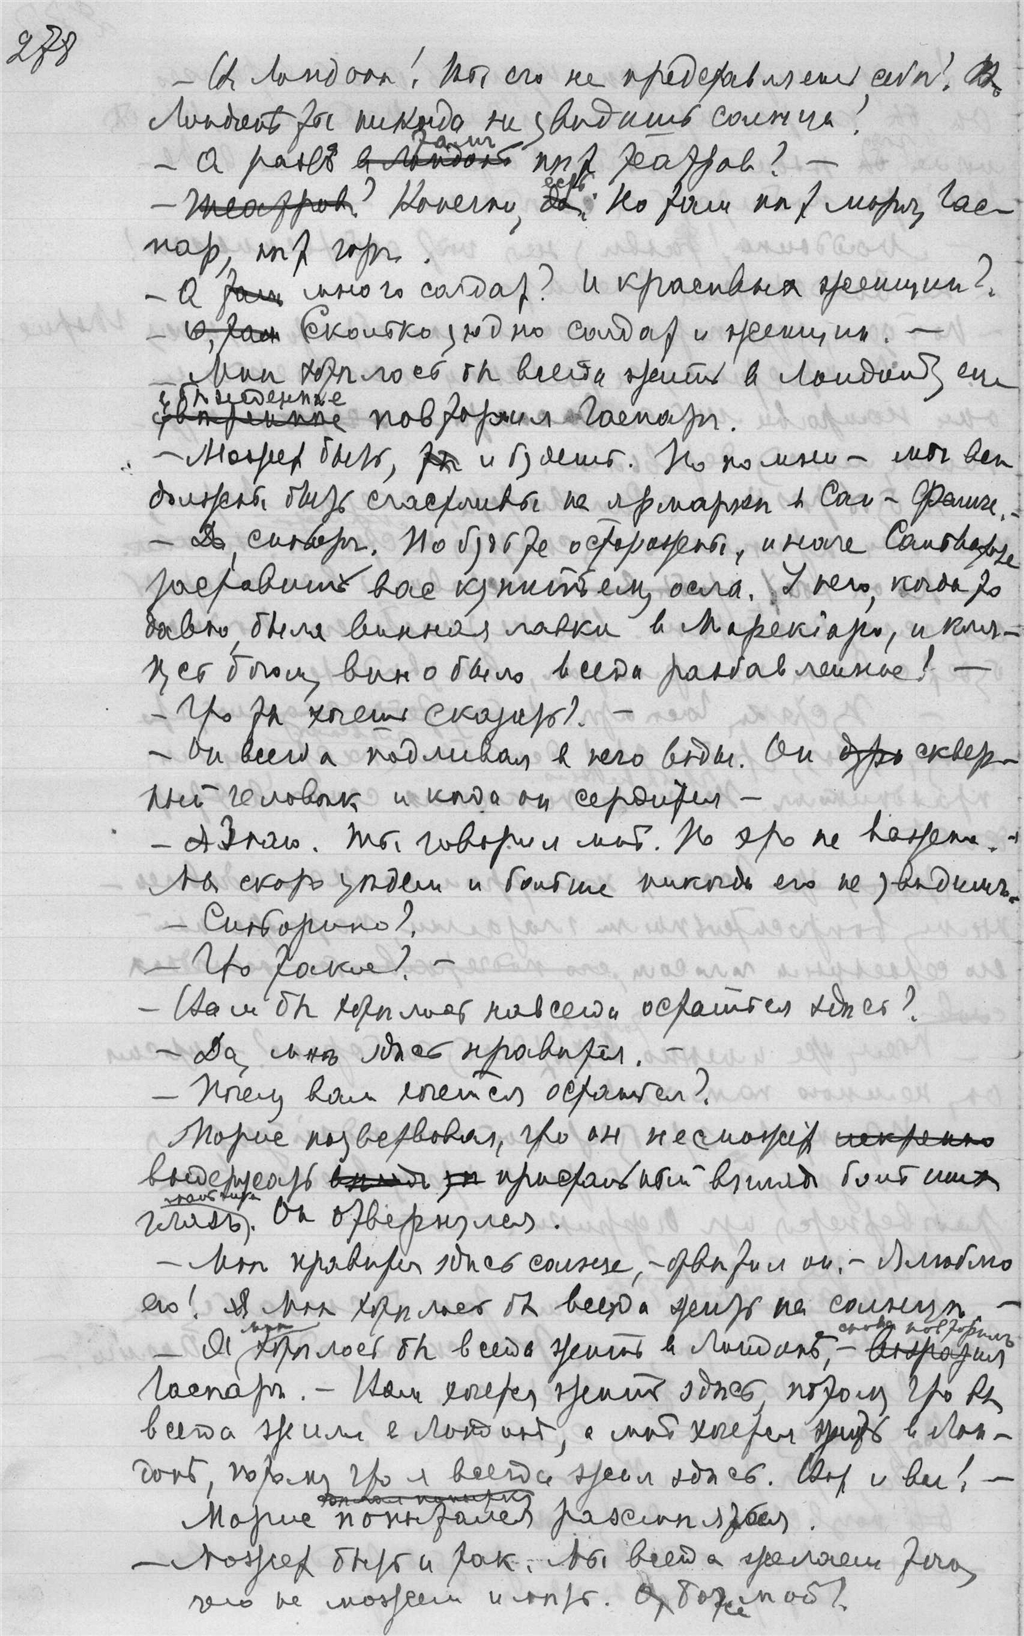 278
— Въ Лондонъ! Ты его не представляешь себѣ! Въ
Лондонѣ ты никогда не увидишь солнца!
тамъ
— А развѣ въ Лондонѣ нѣт театров? —
есть
— Театров? Конечно, да. Но там нѣт моря, Гас-
пар, нѣт гор.
— А там много солдат? И красивыя женщины?
— О, там Сколько угодно солдат и женщин. —
— Мнѣ хотѣлось бы всегда жить в Лондонѣ, еще
убѣжденнѣе
увѣреннѣе повторил Гаспаръ.
— Может быть, ты и будешь. Но помни — мы всѣ
должны быть счастливы на ярмаркѣ в Сан-Феличе. —
— Да, синьоръ. Но будьте осторожны, иначе Сальваторе
заставитъ вас купить ему осла. У него, когда то
давно, была винная лавка в Марекіаро, и клян-
усь богом, вино было всегда разбавленное! —
— Что ты хочешь сказать? —
— Он всегда подливал в него воды. Он сквер-
ный человѣк и когда он сердится —
— Я Знаю. Ты говорил мнѣ. Но это не важно. —
Мы скоро уѣдем и больше никогда его не увидимъ.
— Синьорино?
— Что такое? —
— Вам бы хотѣлось навсегда остаться здѣсь?
— Да, мнѣ здѣсь нравится. —
— Почему вам хочется остаться?
Морис почувствовал, что он не сможет искренно
выдержать пристальный взгляд больших
глазъ. Он отвернулся.
— Мнѣ нравится здѣсь солнце, — отвѣтил он. — Я люблю
его! Я Мнѣ хотѣлось бы всегда жить на солнцѣ. —
мнѣ снова повторилъ
— А хотѣлось бы всегда жить в Лондонѣ, — возразил
Гаспаръ. — Вам хочется жить здѣсь, потому что вы
всегда жили в Лондонѣ, а мнѣ хочется жить в Лон-
донѣ, потому что я всегда жил здѣсь. Вот и все! —
Морис попытался разсмѣяться.
— Может быть и так. Мы всегда желаем того,
чего не можем имѣть. О, боже мой!